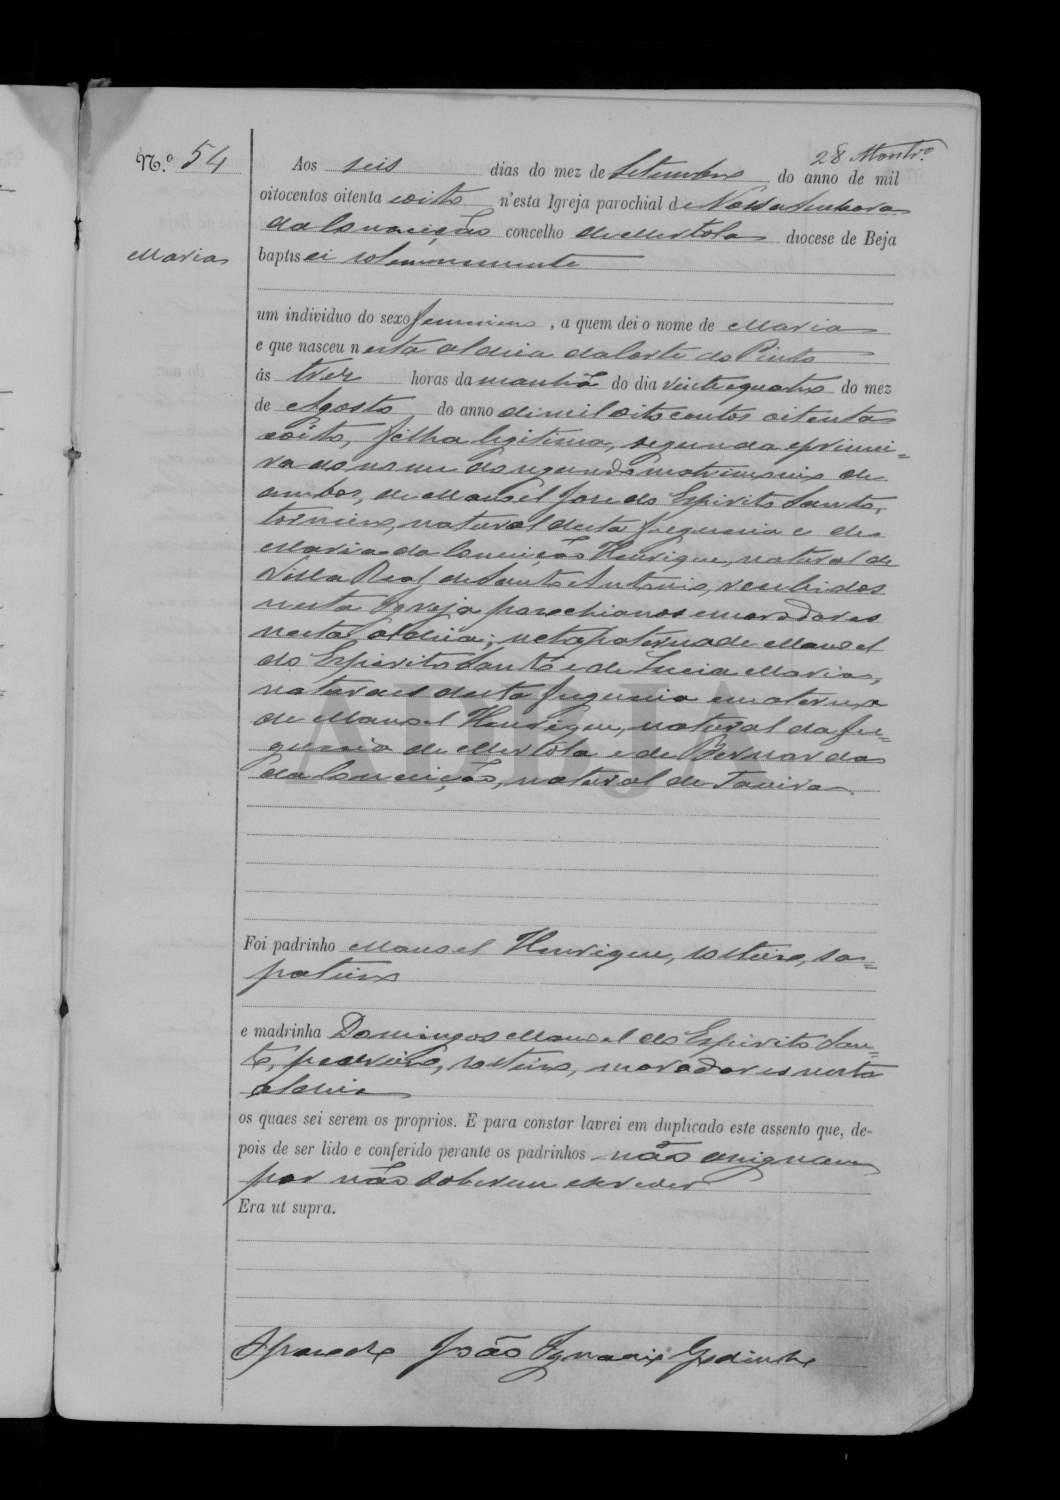 28 Montrº
N.º 54
Aos seis dias do mez de Setembro do anno de mil
oitocentos oitenta eoito n'esta Igreja parochial de Nossa Senhora
da Conceição concelho de Mertola diocese de Beja
Maria
baptisei solemnemente
um individuo do sexo femenino, a quem dei o nome de Maria
e que nasceu nesta aldeia da Corte do Pinto
ás trez horas da manhã do dia vinte e quatro do mez
de Agosto do anno de mil oito centos oitenta
eoito, filha legitima, segunda e primei=
ra do nome do segundo matrimonio de
ambos, de Manoel Jose do Espirito Santo,
natural desta freguesia e de
Maria da Conceição Henrique, natural de
Villa Real de Santo Antonio, recebidos
nesta Igreja parochianos e moradores
nesta aldeia; neta paterna de Manoel
do Espirito Santo e de Lucia Maria,
naturaes desta freguesia e materna
de Manoel Henrique, natural da fre=
guesia de Mertola e de Bernarda
da Conceição, natural de Tavira.
ADBJA
Foi padrinho Manoel Henrique, solteiro, sa=
pateiro
e madrinha Domingos Manoel do Espirito San=
to, pedreiro, solteiro, moradores nesta
aldeia
os quaes sei serem os proprios. E para constar lavrei em duplicado este assento que, de-
pois de ser lido e conferido perante os padrinhos não assignam
por não saberem escrever
Era ut supra.
O Parocho João Ignacio Godinho